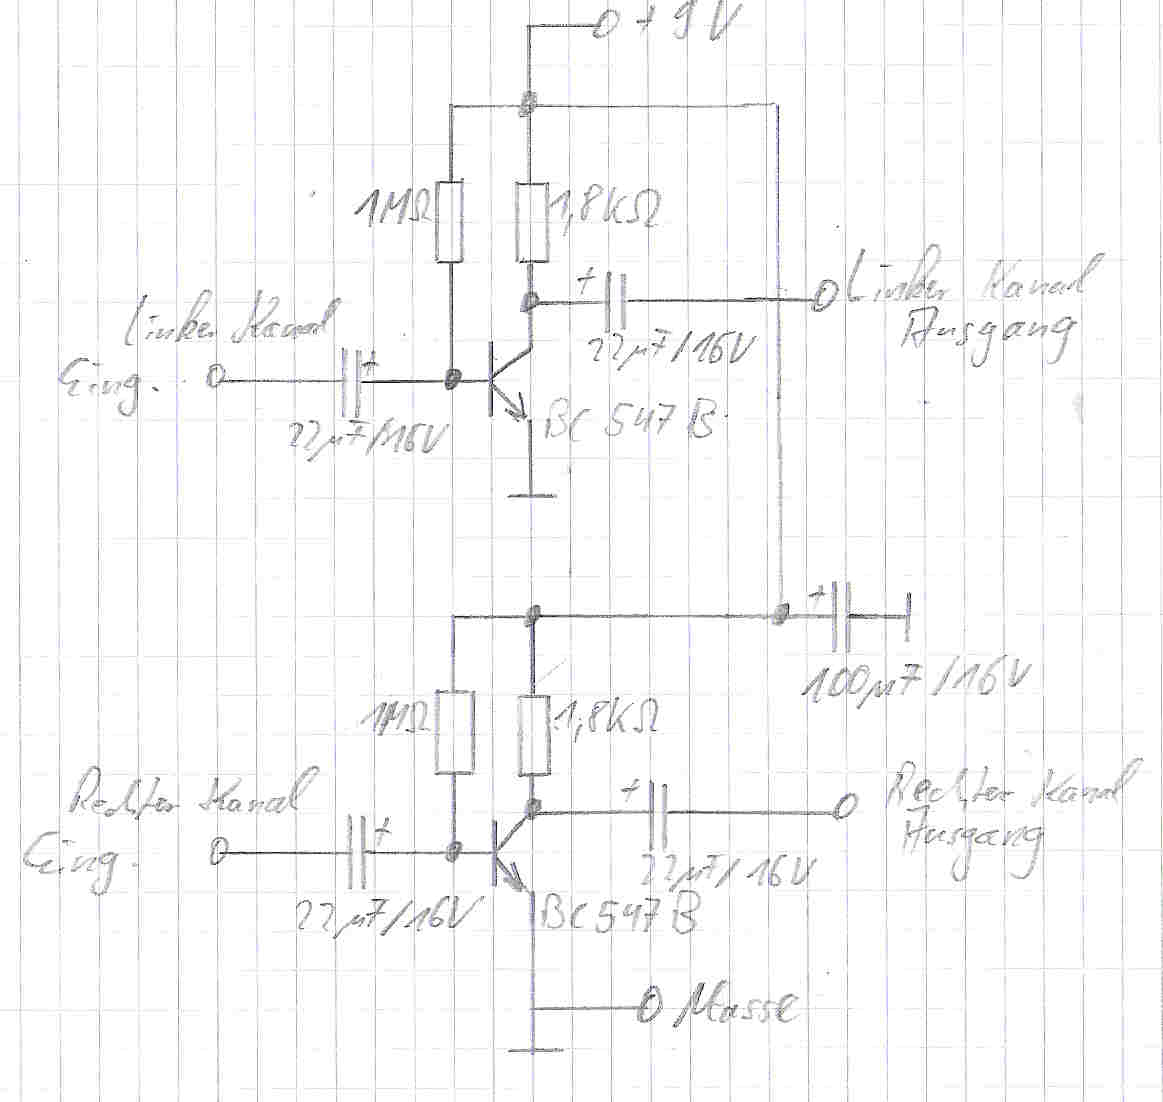 + 9V
1MΩ
1,8KΩ
+
Linker Kanal
Ausgang
22µF/16V
Linker Kanal
Eing.
+
22µF/16V
BC 547 B
+
100µF/16V
1MΩ
1,8KΩ
Rechter Kanal
Eing.
+
22µF/16V
+
22µF/16V
Rechter Kanal
Ausgang
BC 547 B
Masse